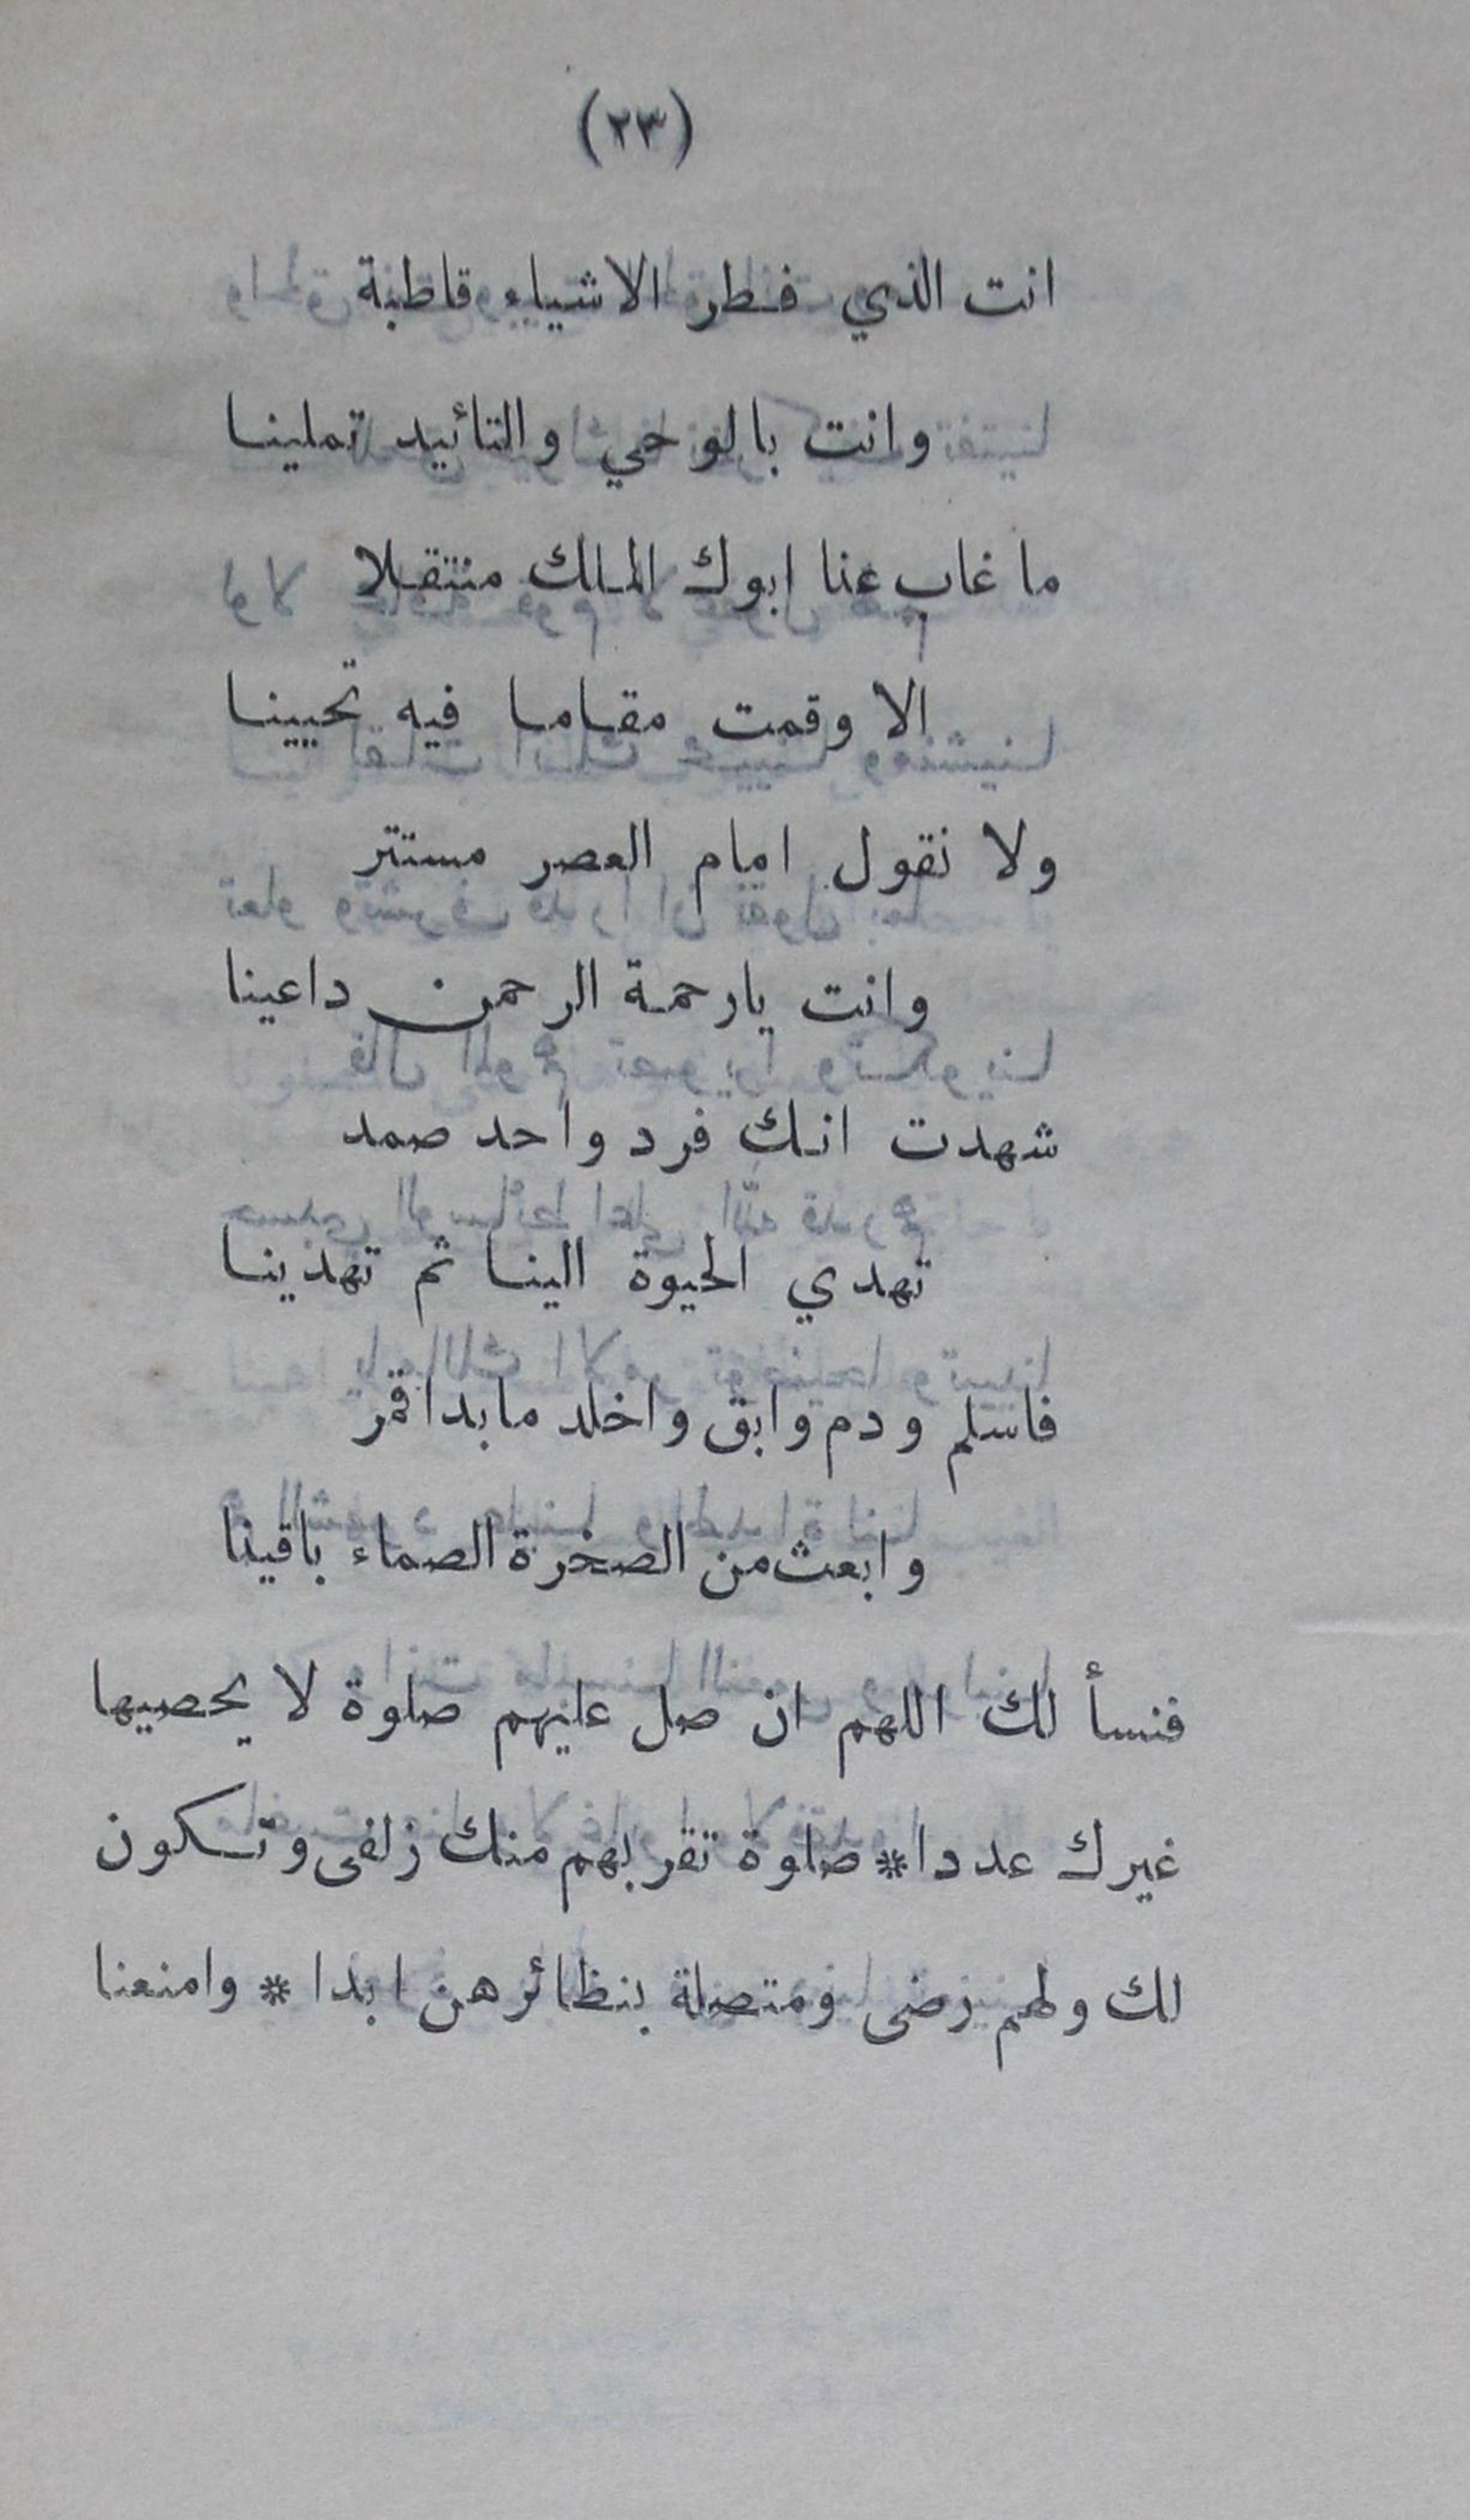 (٢٣)
انت الذي فطر الاشياء قاطبة
وانت بالوحي والتائيد تملينا
ما غاب عنا ابوك الملك منتقلا
الا وقمت مقاما فيه تحيينا
ولا نقول امام العصر مستتر
وانت يارحمة الرحمن داعينا
شهدت انك فرد واحد صمد
تهدي الحيوة الينا ثم تهدينا
فاسلم ودم وابق واخلد مابدا قمر
وابعث من الصخرة الصماء باقينا
فنسألك اللهم ان صل عليهم صلوة لا يحصيها
غيرك عددا * صلوة تقربهم منك زلفى وتكون
لك ولهم رضى ومتصلة بنظائرهن ابدا * وامنعنا